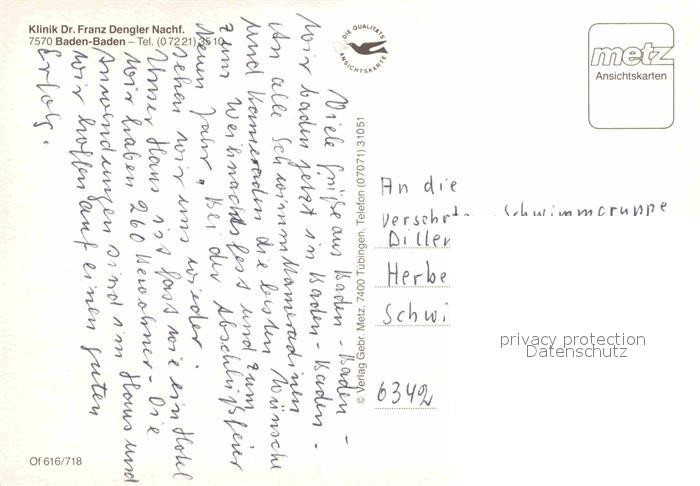 Klinik Dr. Franz Dengler Nachf.
7570 Baden-Baden – Tel. (07221) 3510
DIE QUALITÄTS
ANSICHTSKARTE
metz
Ansichtskarten
Viele Grüße aus Baden-Baden -
Wir baden jetzt in Baden-Baden -
An alle Schwimmkameradinen
und Kameraden die besten Wünsche
zum Weihnachtsfest und zum
Neuen Jahr. Bei der Abschlußfeier
sehen wir uns wieder.
Unser Haus ist fast wie ein Hotel
wir haben 260 Bewohner - Die
Anwendungen sind im Haus und
wir hoffen auf einen guten
Erfolg.
© Verlag Gebr. Metz, 7400 Tübingen, Telefon (07071) 31051
An die
Versehrten-Schwimmgruppe
Diller
Herbe
Schwi
privacy protection
Datenschutz
6342
Of 616/718